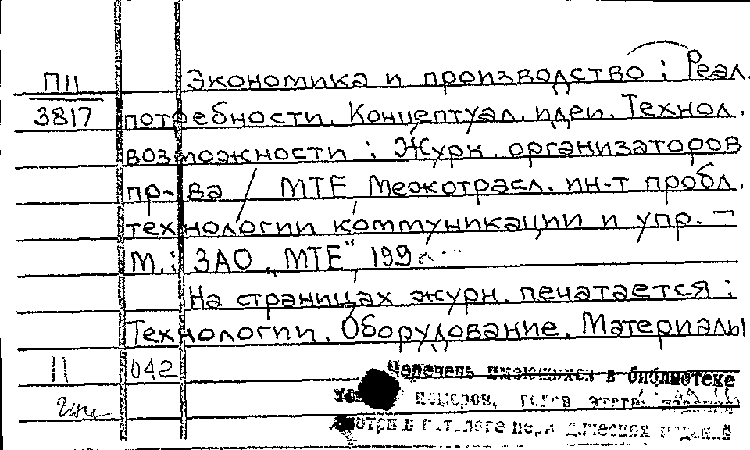 П11
3817
Экономика и производство: Реал.
потребности. Концептуал. идеи. Технол.
возможности: Журн. организаторов
пр-ва / МТЕ Межотрасл. ин-т пробл.
технологии коммуникации и упр. –
М.: ЗАО „МТЕ", 199
На страницах журн. печатается:
Технологии. Оборудование. Материалы
11 042
Перечень имеющихся в библиотеке
номеров,
смотри в каталоге периодических изданий